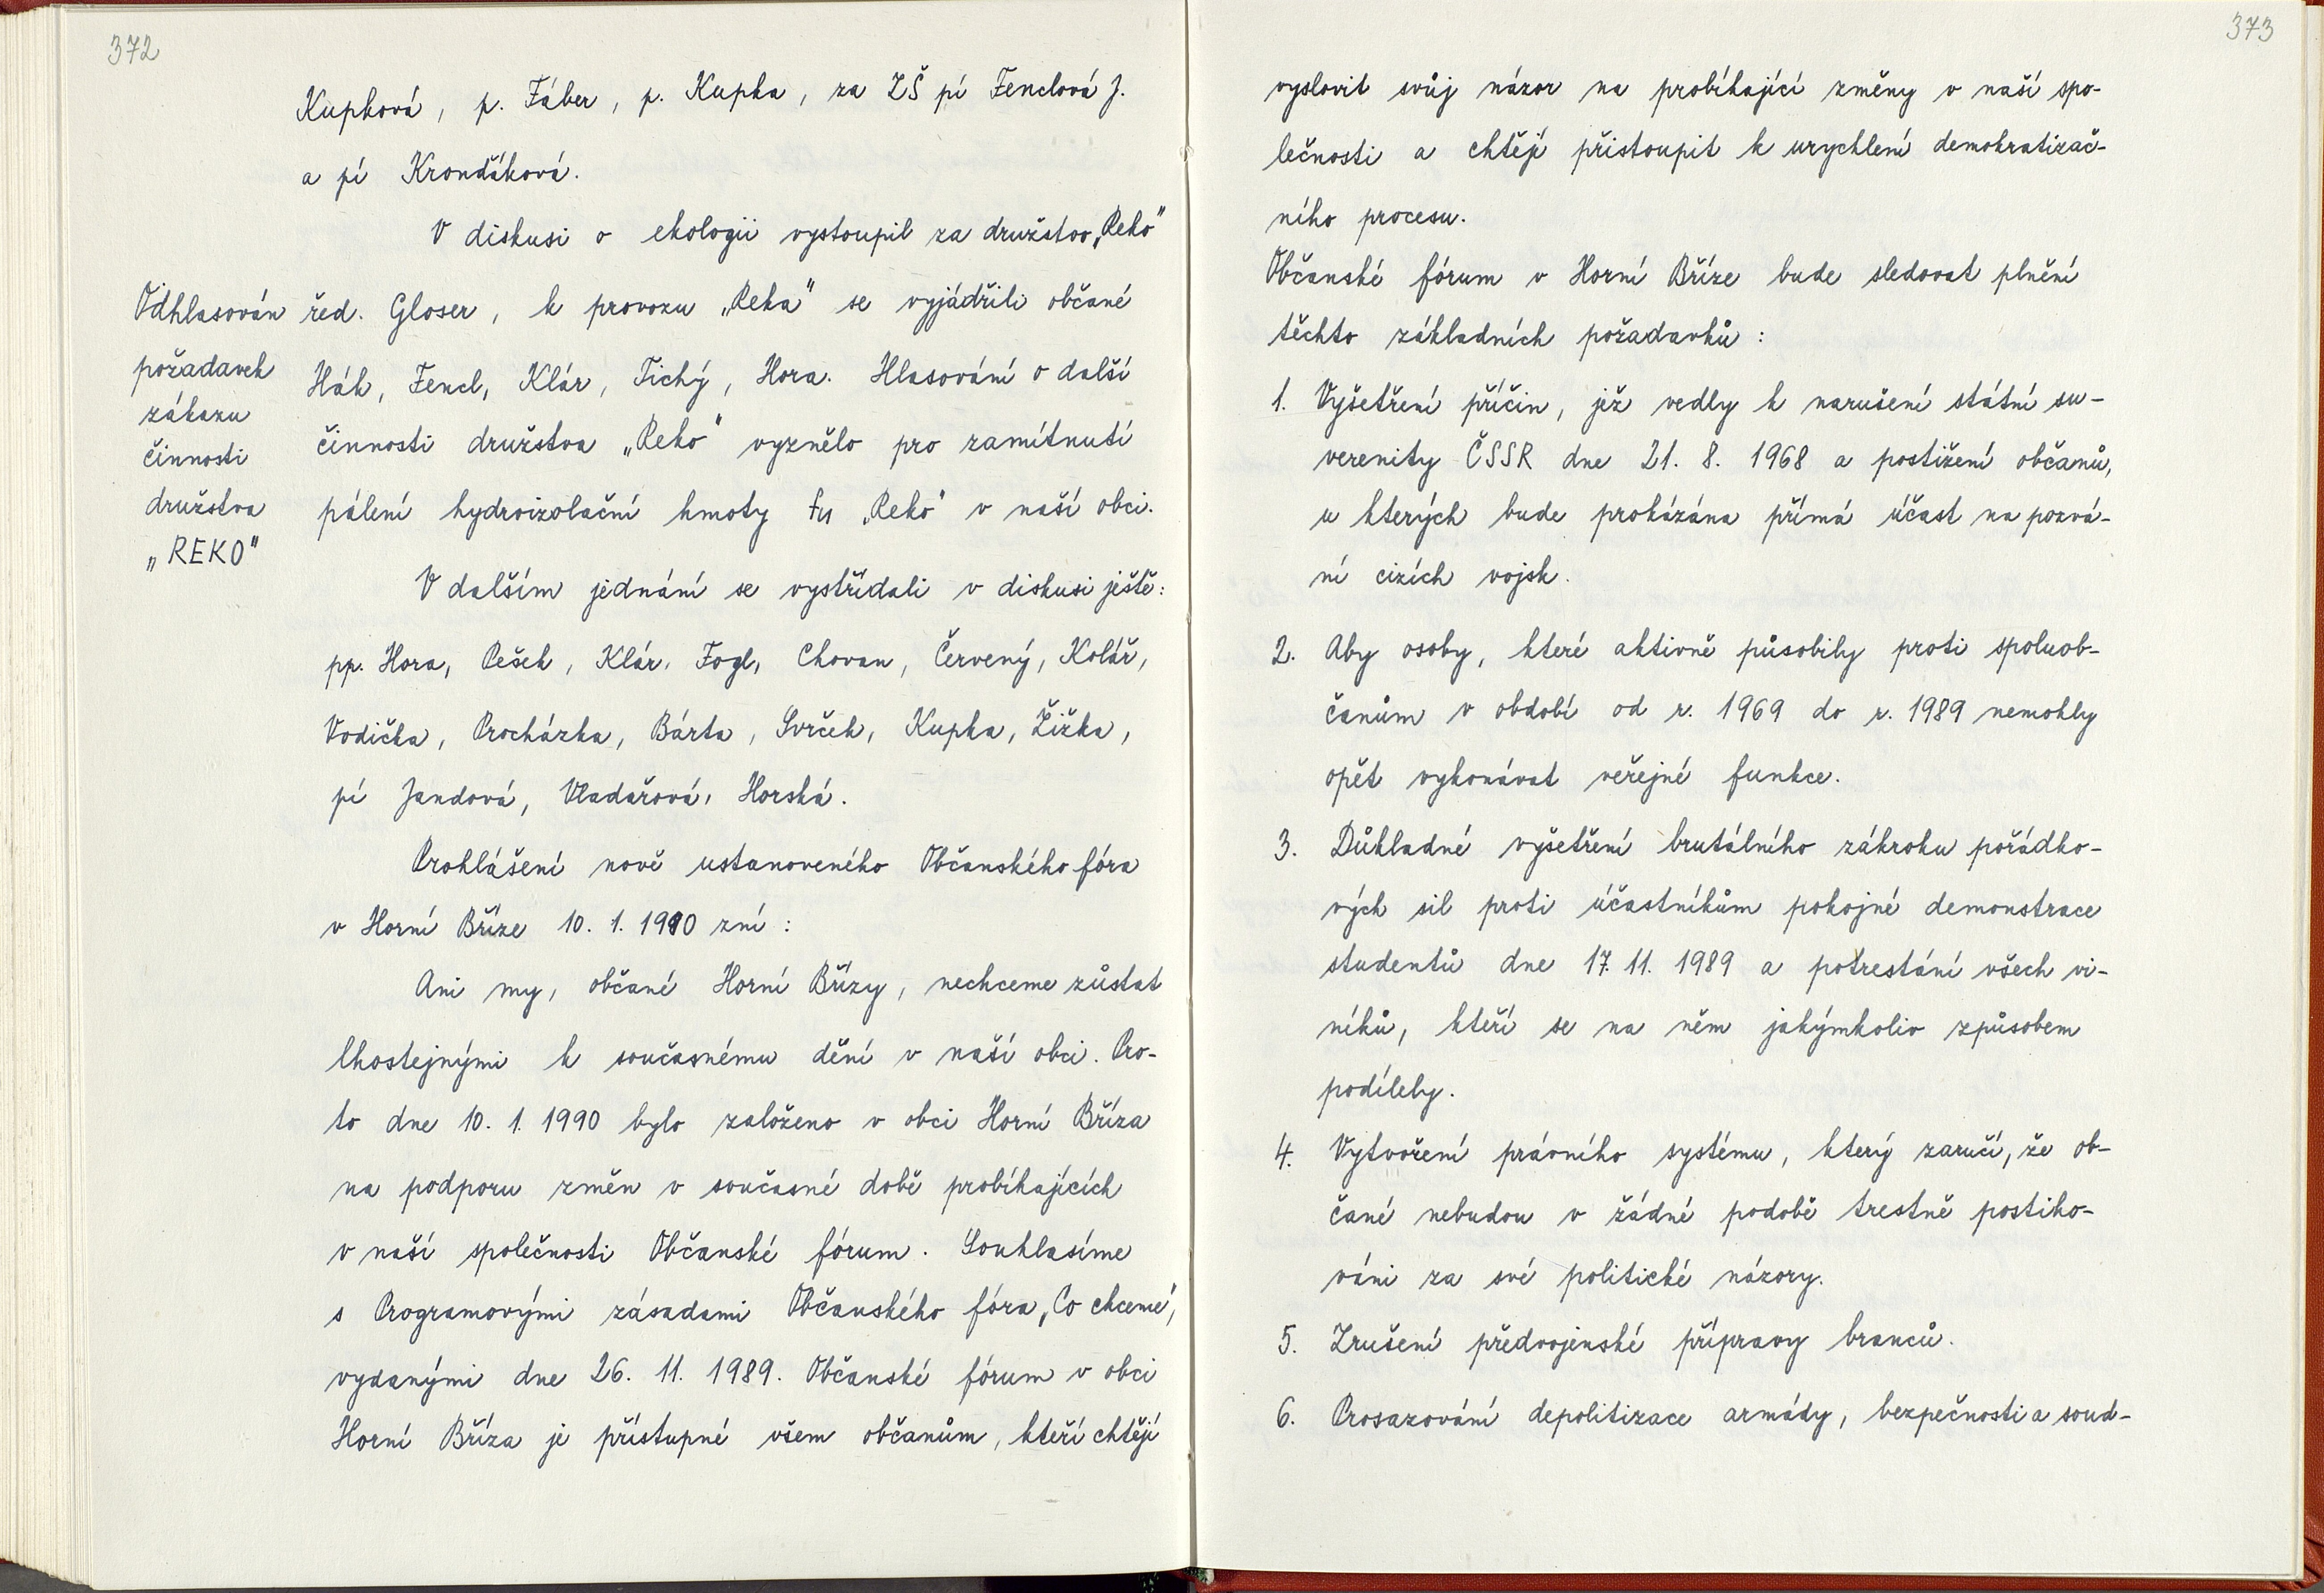 372
Kupková, p. Fáber, p. Kupka, za ZŠ pí Fenclová J.
a pí Krondáková.
V diskusi o ekologii vystoupil za družstvo „Reko"
Odhlasován
požadavek
zákazu
činnosti
družstva
„REKO"
řed. Gloser, k provozu „Reka" se vyjádřili občané
Hák, Fencl, Klár, Tichý, Hora. Hlasování o další
činnosti družstva „Reko" vyznělo pro zamítnutí
pálení hydroizolační hmoty fy „Reko" v naší obci.
V dalším jednání se vystřídali v diskusi ještě:
pp. Hora, Pešek, Klár, Fogl, Chovan, Červený, Kolář,
Vodička, Procházka, Bárta, Svrček, Kupka, Žižka,
pí Jandová, Vladařová, Horská.
Prohlášení nově ustanoveného Občanského fóra
v Horní Bříze 10. 1. 1990 zní:
Ani my, občané Horní Břízy, nechceme zůstat
lhostejnými k současnému dění v naší obci. Pro-
to dne 10. 1. 1990 bylo založeno v obci Horní Bříza
na podporu změn v současné době probíhajících
v naší společnosti Občanské fórum. Souhlasíme
s Programovými zásadami Občanského fóra „Co chceme",
vydanými dne 26. 11. 1989. Občanské fórum v obci
Horní Bříza je přístupné všem občanům, kteří chtějí
373
vyslovit svůj názor na probíhající změny v naší spo-
lečnosti a chtějí přistoupit k urychlení demokratizač-
ního procesu.
Občanské fórum v Horní Bříze bude sledovat plnění
těchto základních požadavků:
1. Vyšetření příčin, jež vedly k narušení státní su-
verenity ČSSR dne 21. 8. 1968 a postižení občanů,
u kterých bude prokázána přímá účast na pozvá-
ní cizích vojsk.
2. Aby osoby, které aktivně působily proti spoluob-
čanům v období od r. 1969 do r. 1989 nemohly
opět vykonávat veřejné funkce.
3. Důkladné vyšetření brutálního zákroku pořádko-
vých sil proti účastníkům pokojné demonstrace
studentů dne 17. 11. 1989 a potrestání všech vi-
níků, kteří se na něm jakýmkoliv způsobem
podílely.
4. Vytvoření právního systému, který zaručí, že ob-
čané nebudou v žádné podobě trestně postiho-
váni za své politické názory.
5. Zrušení předvojenské přípravy branců.
6. Prosazování depolitizace armády, bezpečnosti a soud-